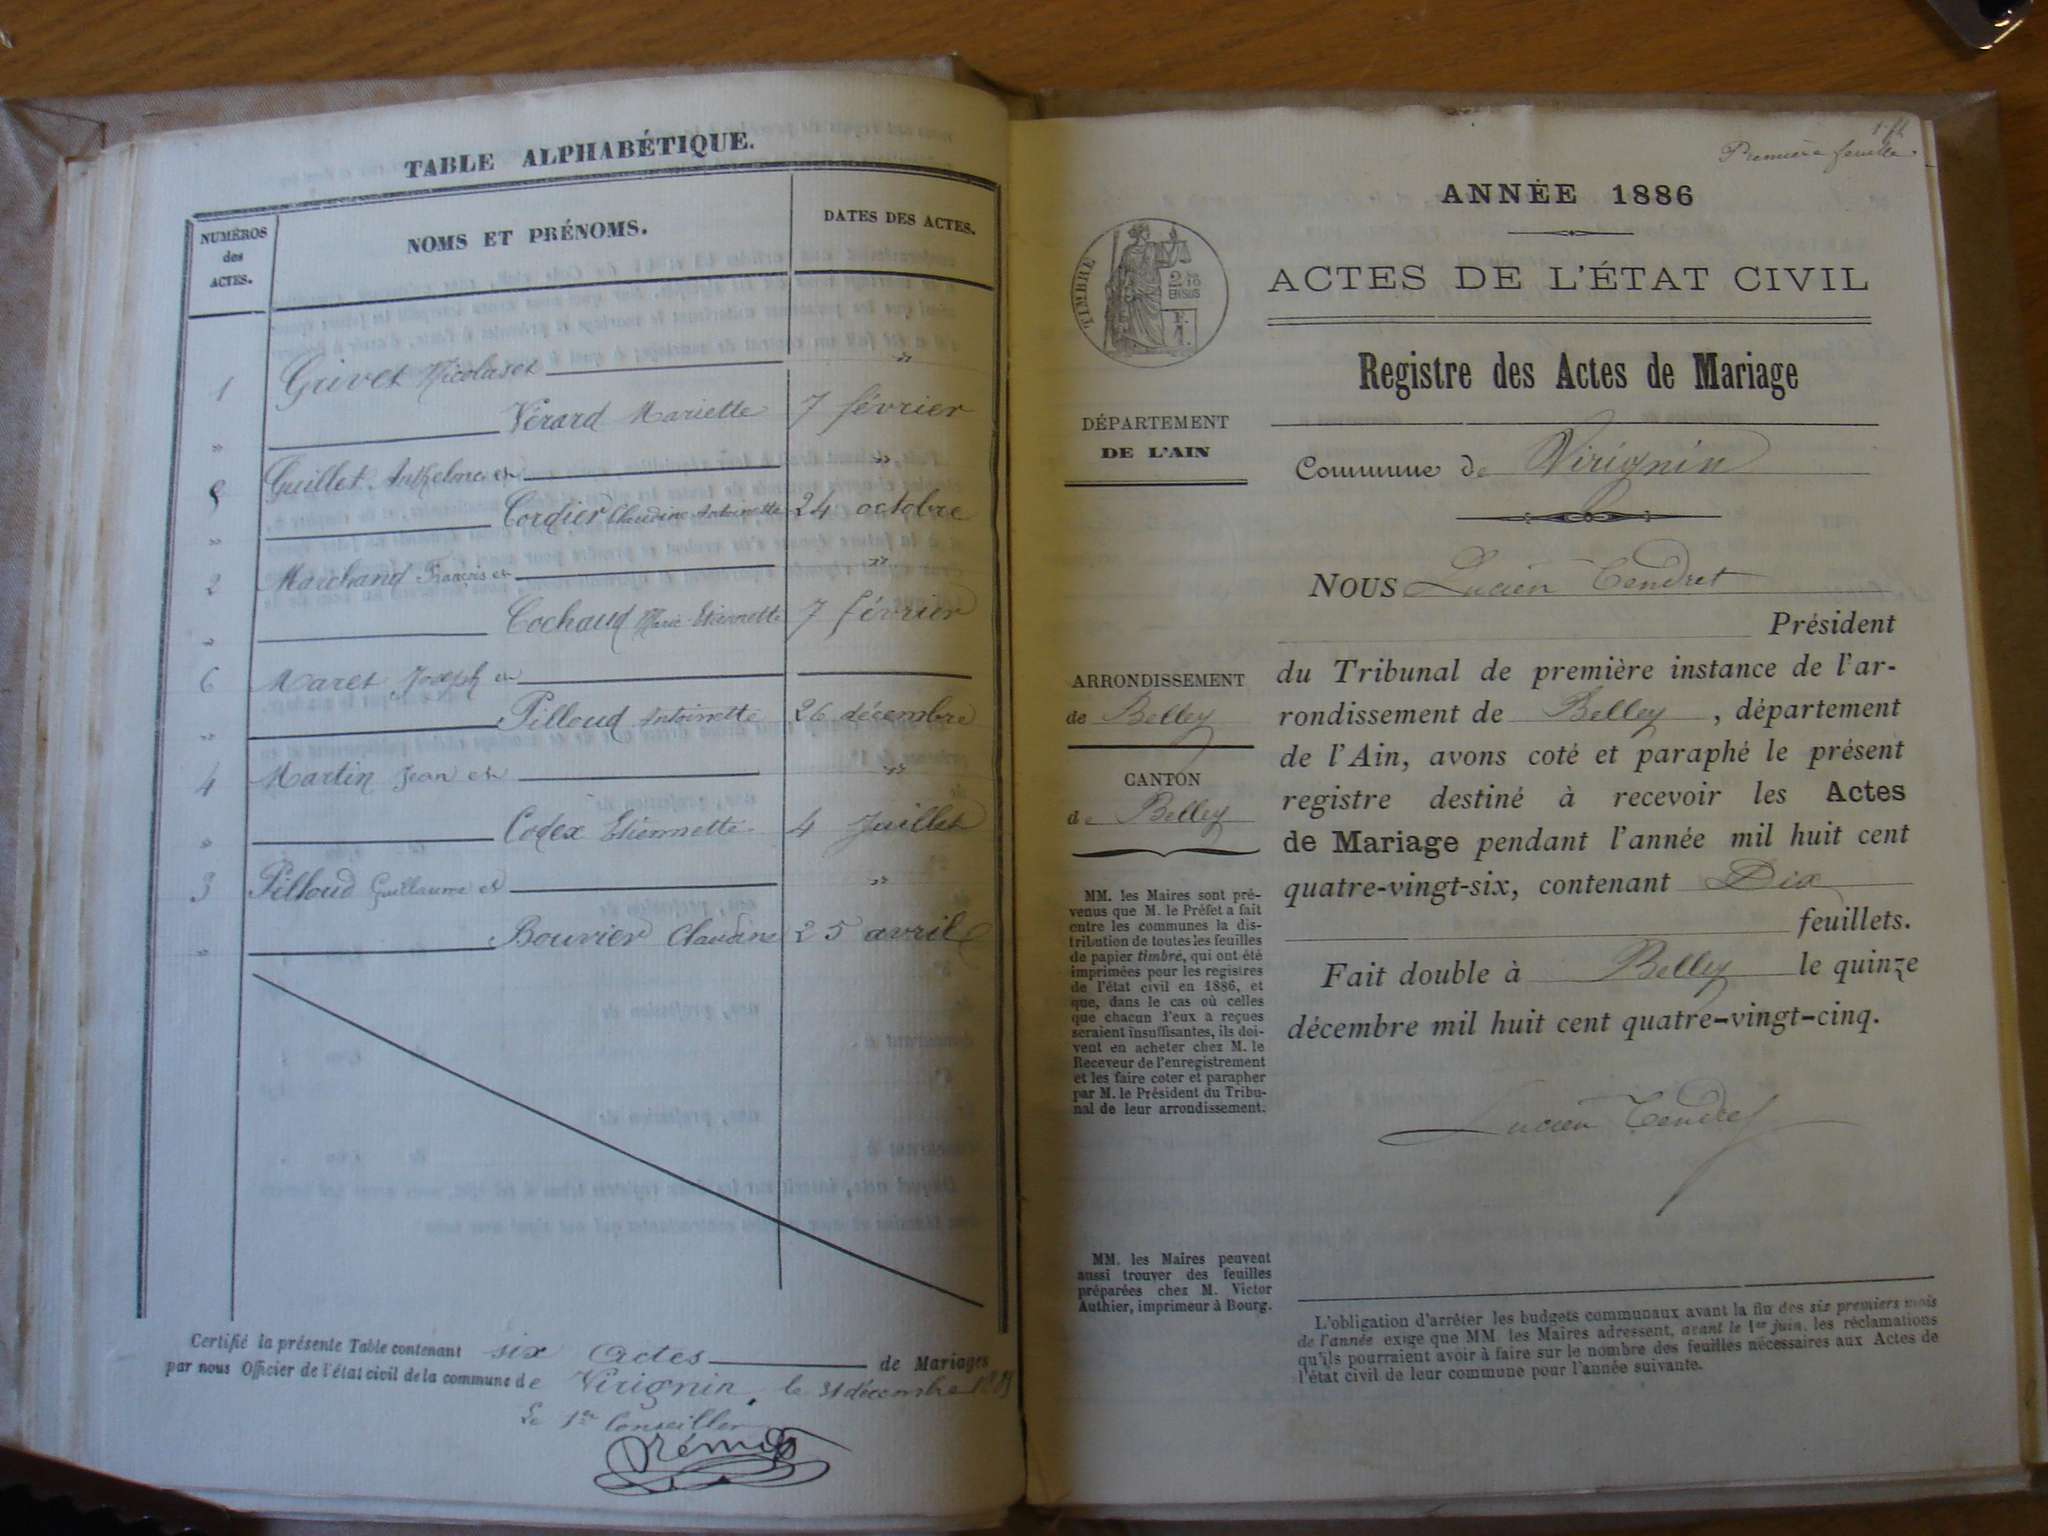 TABLE ALPHABÉTIQUE.
NUMÉROS
des
ACTES.
NOMS ET PRÉNOMS.
DATES DES ACTES.
1 Grivet Nicolas et "
" Vérard Mariette 7 février
5 Guillet Anthelme et "
" Cordier Claudine Antoinette 24 octobre
2 Marchand François et "
" Cochaud Marie Etiennette 7 février
6 Maret Joseph et
" Pilloud Antoinette 26 décembre
4 Martin Jean et "
" Codex Etiennette 4 Juillet
3 Pilloud Guillaume et "
" Bouvier Claudine 25 avril
Certifié la présente Table contenant six actes de Mariages
par nous Officier de l'état civil de la commune de Virignin, le 31 décembre
Le 1er Conseiller
Première feuille.
ANNÉE 1886
TIMBRE
ACTES DE L'ÉTAT CIVIL
Registre des Actes de Mariage
DÉPARTEMENT
DE L'AIN
Commune de Virignin
NOUS Lucien Tendret
Président
du Tribunal de première instance de l'ar-
rondissement de Belley, département
de l'Ain, avons coté et paraphé le présent
registre destiné à recevoir les Actes
de Mariage pendant l'année mil huit cent
quatre-vingt-six, contenant Dix
feuillets.
Fait double à Belley le quinze
décembre mil huit cent quatre-vingt-cinq.
Lucien Tendret
ARRONDISSEMENT
de Belley
CANTON
de Belley
MM. les Maires sont pré-
venus que M. le Préfet a fait
entre les communes la dis-
tribution de toutes les feuilles
de papier timbre, qui ont été
imprimées pour les registres
de l'état civil en 1886, et
que, dans le cas où celles
que chacun d'eux a reçues
seraient insuffisantes, ils doi-
vent en acheter chez M. le
Receveur de l'enregistrement
et les faire coter et parapher
par M. le Président du Tribu-
nal de leur arrondissement.
MM. les Maires peuvent
aussi trouver des feuilles
préparées chez M. Victor
Authier, imprimeur à Bourg.
L'obligation d'arrêter les budgets communaux avant la fin des six premiers mois
de l'année exige que MM. les Maires adressent, avant le 1er juin, les réclamations
qu'ils pourraient avoir à faire sur le nombre des feuilles nécessaires aux Actes de
l'état civil de leur commune pour l'année suivante.